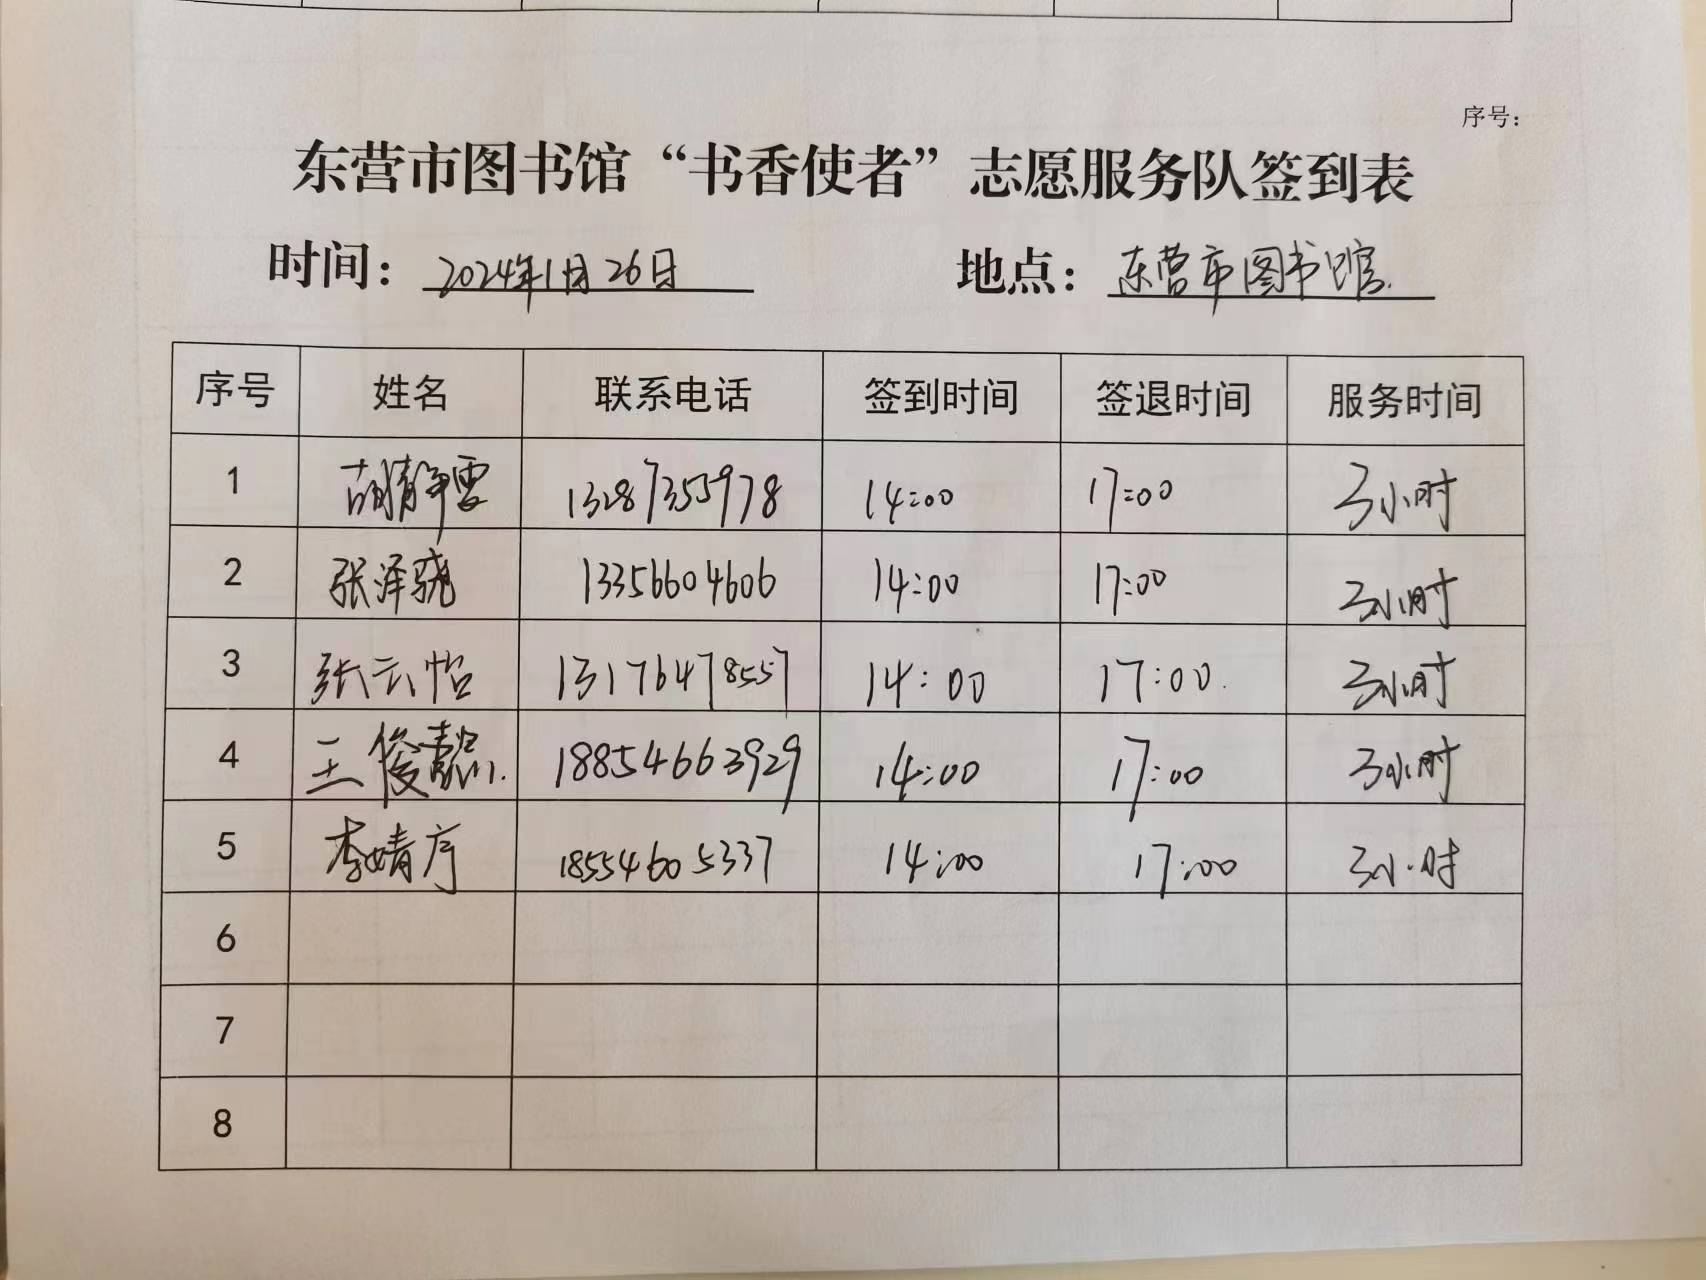 序号：
东营市图书馆“书香使者”志愿服务队签到表
时间：2024年1月26日 地点：东营市图书馆.
序号 姓名 联系电话 签到时间 签退时间 服务时间
1 胡静雪 13287355978 14:00 17:00 3小时
2 张泽骁 13356604606 14:00 17:00 3小时
3 张云怡 13176478557 14:00 17:00. 3小时
4 王俊懿. 18854663929 14:00 17:00 3小时
5 李婧序 18554605337 14:00 17:00 3小时
6
7
8